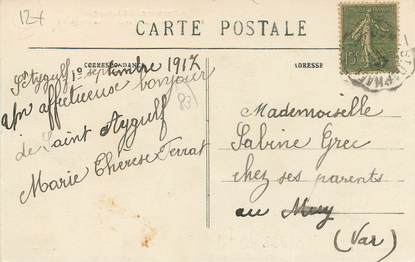 12+
CARTE POSTALE
CORRESPONDANCE
ADRESSE
St Aygulf 1° septembre 1917
Un affectueuse bonjour
de Saint Aygulf
Marie Thérèse Ferrat
83
Mademoiselle
Sabine Grec
chez ses parents
au Muy
(Var)
15